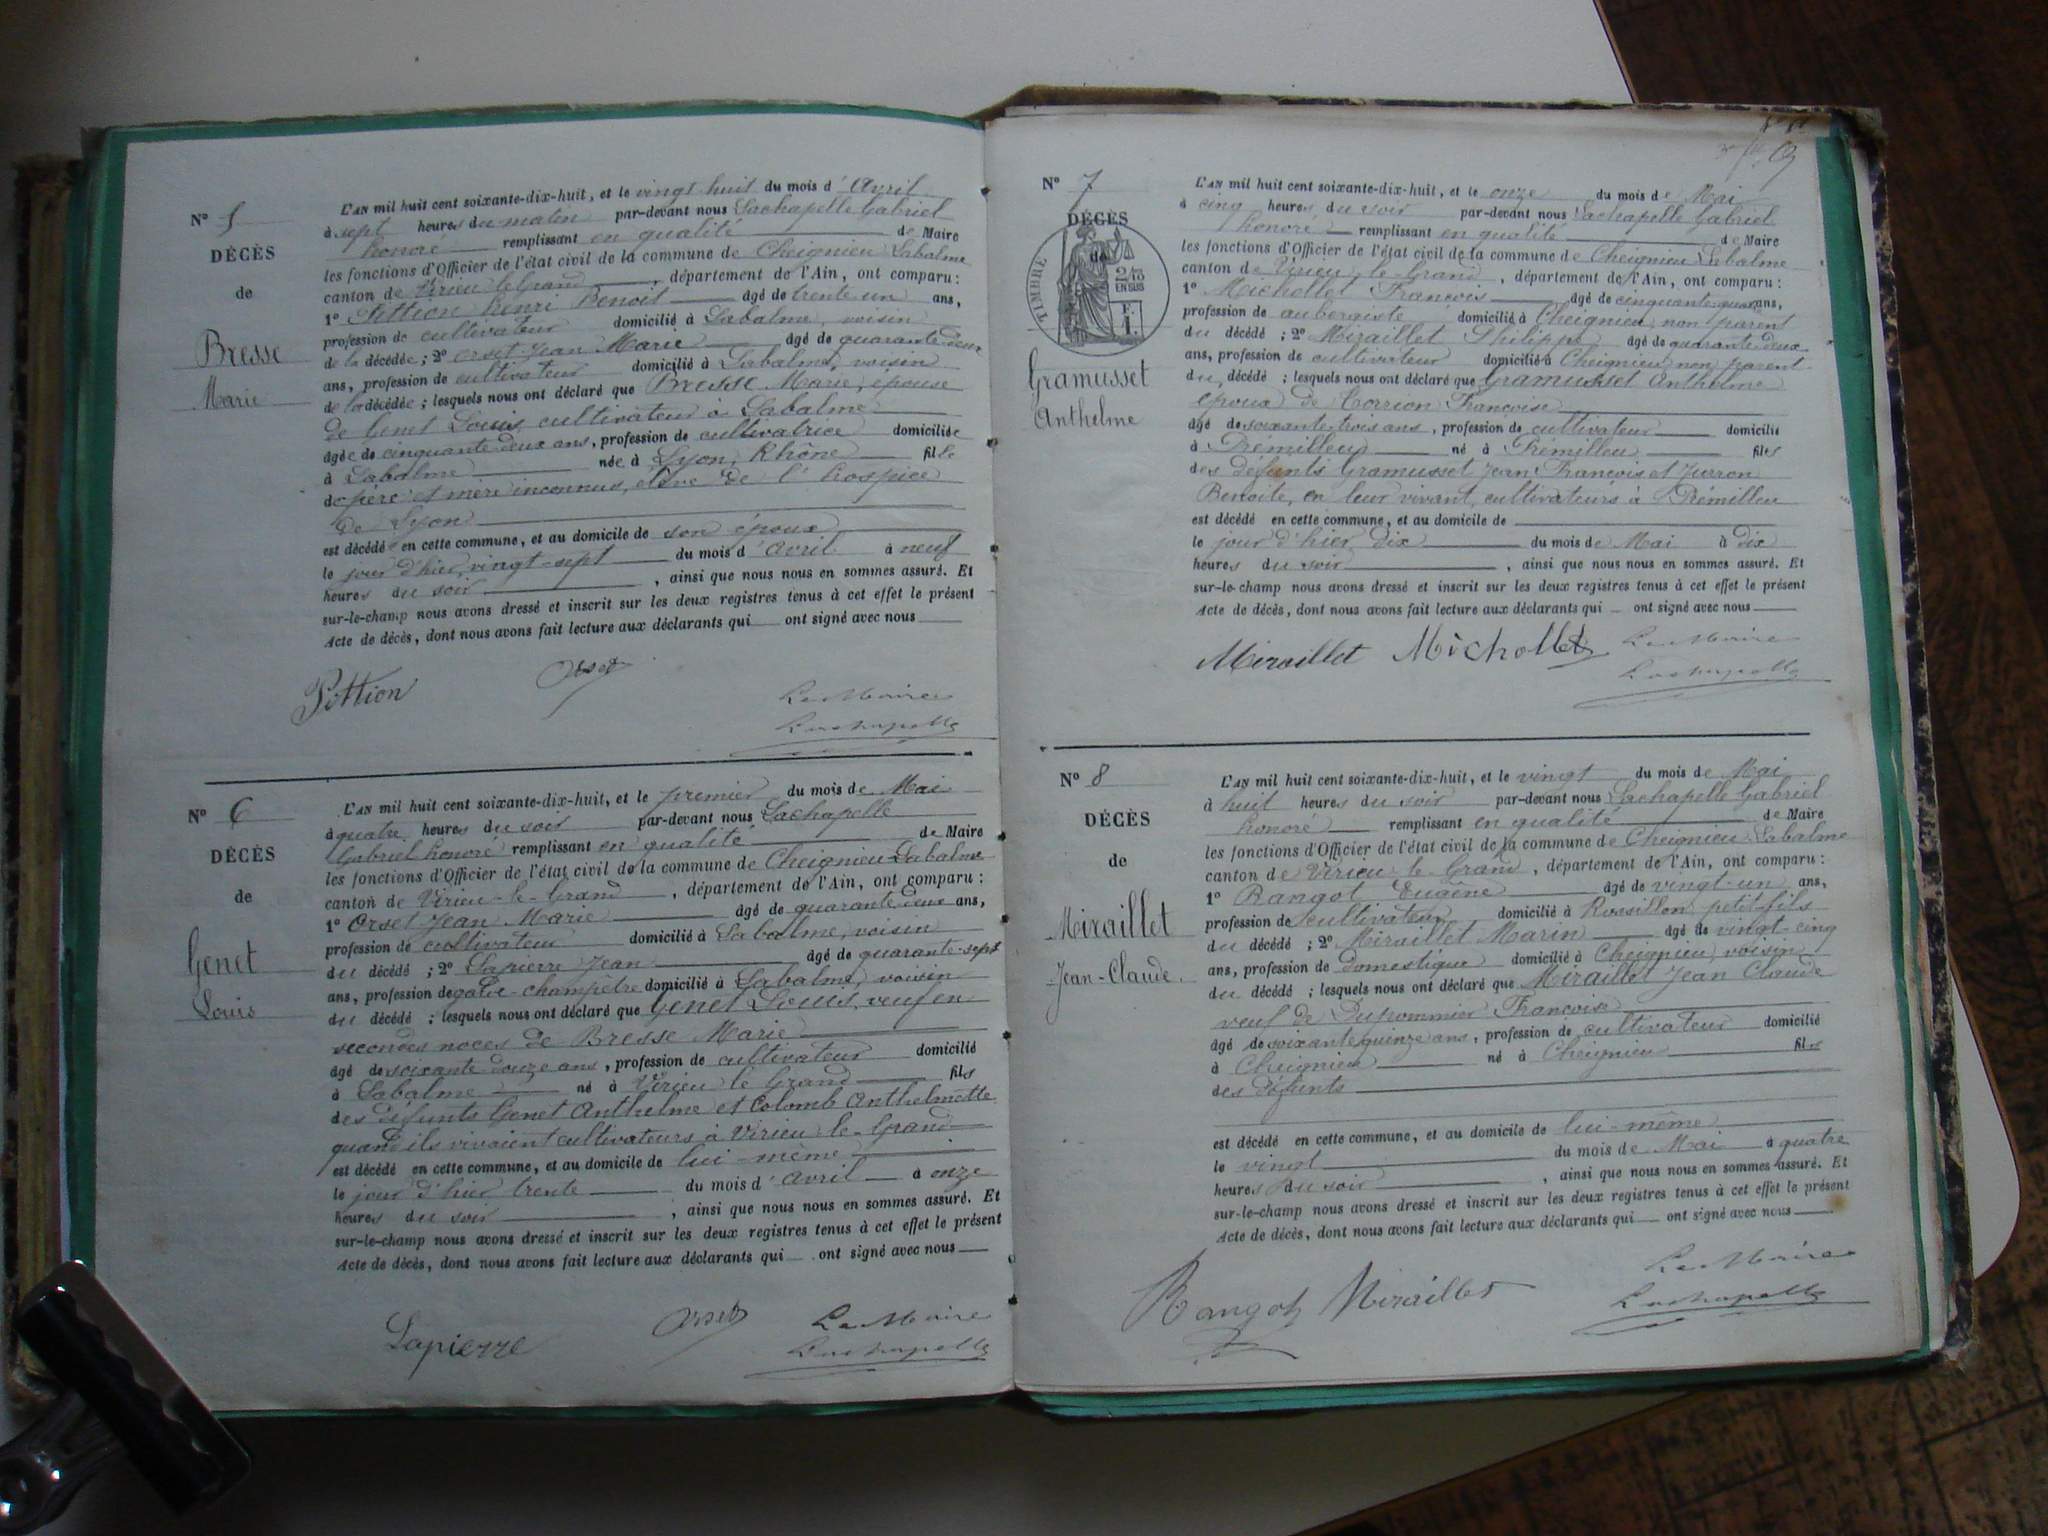 Nº 5
DÉCÈS
de
Bresse
Marie
L'AN mil huit cent soixante-dix-huit, et le vingt-huit du mois d'Avril
à sept heures du matin par-devant nous Lachapelle Gabriel
honoré remplissant en qualité de Maire
les fonctions d'Officier de l'état civil de la commune de Cheignieu Labalme
canton de Virieu le Grand, département de l'Ain, ont comparu :
1º Pittion henri Benoit âgé de trente un ans,
profession de cultivateur domicilié à Labalme, voisin
de la décédée ; 2º Orset Jean Marie âgé de quarante-deux
ans, profession de cultivateur domicilié à Labalme, voisin
de la décédée ; lesquels nous ont déclaré que Bresse Marie, épouse
de Genet Louis, cultivateur à Labalme
âgée de cinquante-deux ans, profession de cultivatrice domiciliée
à Labalme née à Lyon, Rhône fille
de père et mère inconnus, élève de l'hospice
de Lyon
est décédée en cette commune, et au domicile de son époux
le jour d'hier, vingt-sept du mois d'avril à neuf
heures du soir, ainsi que nous nous en sommes assuré. Et
sur-le-champ nous avons dressé et inscrit sur les deux registres tenus à cet effet le présent
Acte de décès, dont nous avons fait lecture aux déclarants qui ont signé avec nous
Pittion Orset Le Maire
Lachapelle
Nº 6
DÉCÈS
de
Genet
Louis
L'AN mil huit cent soixante-dix-huit, et le premier du mois de Mai
à quatre heures du soir par-devant nous Lachapelle
Gabriel honoré remplissant en qualité de Maire
les fonctions d'Officier de l'état civil de la commune de Cheignieu Labalme
canton de Virieu-le-Grand, département de l'Ain, ont comparu :
1º Orset Jean Marie âgé de quarante-deux ans,
profession de cultivateur domicilié à Labalme, voisin
du décédé ; 2º Lapierre Jean âgé de quarante-sept
ans, profession de garde-champêtre domicilié à Labalme, voisin
du décédé ; lesquels nous ont déclaré que Genet Louis, veuf en
secondes noces de Bresse Marie
âgé de soixante douze ans, profession de cultivateur domicilié
à Labalme né à Virieu le Grand fils
des défunts Genet Anthelme et Colomb Anthelmette
quand ils vivaient cultivateurs à Virieu-le-Grand
est décédé en cette commune, et au domicile de lui-même
le jour d'hier trente du mois d'avril à onze
heures du soir, ainsi que nous nous en sommes assuré. Et
sur-le-champ nous avons dressé et inscrit sur les deux registres tenus à cet effet le présent
Acte de décès, dont nous avons fait lecture aux déclarants qui ont signé avec nous
Lapierre Orset Le Maire
Lachapelle
Nº 7
DÉCÈS
de
TIMBRE
2/10
EN SUS
F.
1.
Gramusset
Anthelme
L'AN mil huit cent soixante-dix-huit, et le onze du mois de Mai
à cinq heures du soir par-devant nous Lachapelle Gabriel
honoré remplissant en qualité de Maire
les fonctions d'Officier de l'état civil de la commune de Cheignieu Labalme
canton de Virieu-le-Grand, département de l'Ain, ont comparu :
1º Michollet François âgé de cinquante-quatre ans,
profession de aubergiste domicilié à Cheignieu, non parent
du décédé ; 2º Miraillet Philippe âgé de quarante-deux
ans, profession de cultivateur domicilié à Cheignieu, non parent
du décédé ; lesquels nous ont déclaré que Gramusset Anthelme
époux de Corrion Françoise
âgé de soixante-trois ans, profession de cultivateur domicilié
à Prémillieu né à Prémillieu fils
des défunts Gramusset Jean François et
Benoite, en leur vivant, cultivateurs à Prémillieu
est décédé en cette commune, et au domicile de
le jour d'hier dix du mois de Mai à dix
heures du soir, ainsi que nous nous en sommes assuré. Et
sur-le-champ nous avons dressé et inscrit sur les deux registres tenus à cet effet le présent
Acte de décès, dont nous avons fait lecture aux déclarants qui ont signé avec nous
Miraillet Michollet Le Maire
Lachapelle
Nº 8
DÉCÈS
de
Miraillet
Jean-Claude.
L'AN mil huit cent soixante-dix-huit, et le vingt du mois de Mai
à huit heures du soir par-devant nous Lachapelle Gabriel
honoré remplissant en qualité de Maire
les fonctions d'Officier de l'état civil de la commune de Cheignieu Labalme
canton de Virieu-le-Grand, département de l'Ain, ont comparu :
1º Rangot Eugène âgé de vingt-un ans,
profession de cultivateur domicilié à Rossillon, petit-fils
du décédé ; 2º Miraillet Marin âgé de vingt-cinq
ans, profession de domestique domicilié à Cheignieu, voisin
du décédé ; lesquels nous ont déclaré que Miraillet Jean Claude
veuf de Dupommier Françoise
âgé de soixante quinze ans, profession de cultivateur domicilié
à Cheignieu né à Cheignieu fils
des défunts
est décédé en cette commune, et au domicile de lui-même
le vingt du mois de Mai à quatre
heures du soir, ainsi que nous nous en sommes assuré. Et
sur-le-champ nous avons dressé et inscrit sur les deux registres tenus à cet effet le présent
Acte de décès, dont nous avons fait lecture aux déclarants qui ont signé avec nous
Rangot Miraillet Le Maire
Lachapelle